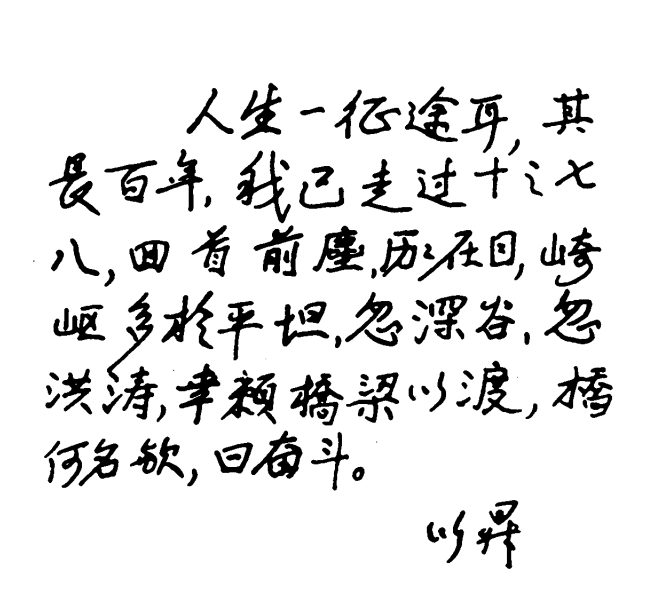 人生一征途耳，其
長百年，我已走过十之七
八，回首前塵，历历在目，崎
岖多於平坦，忽深谷，忽
洪涛，幸赖橋梁以渡，橋
何名欤，曰奋斗。
以昇